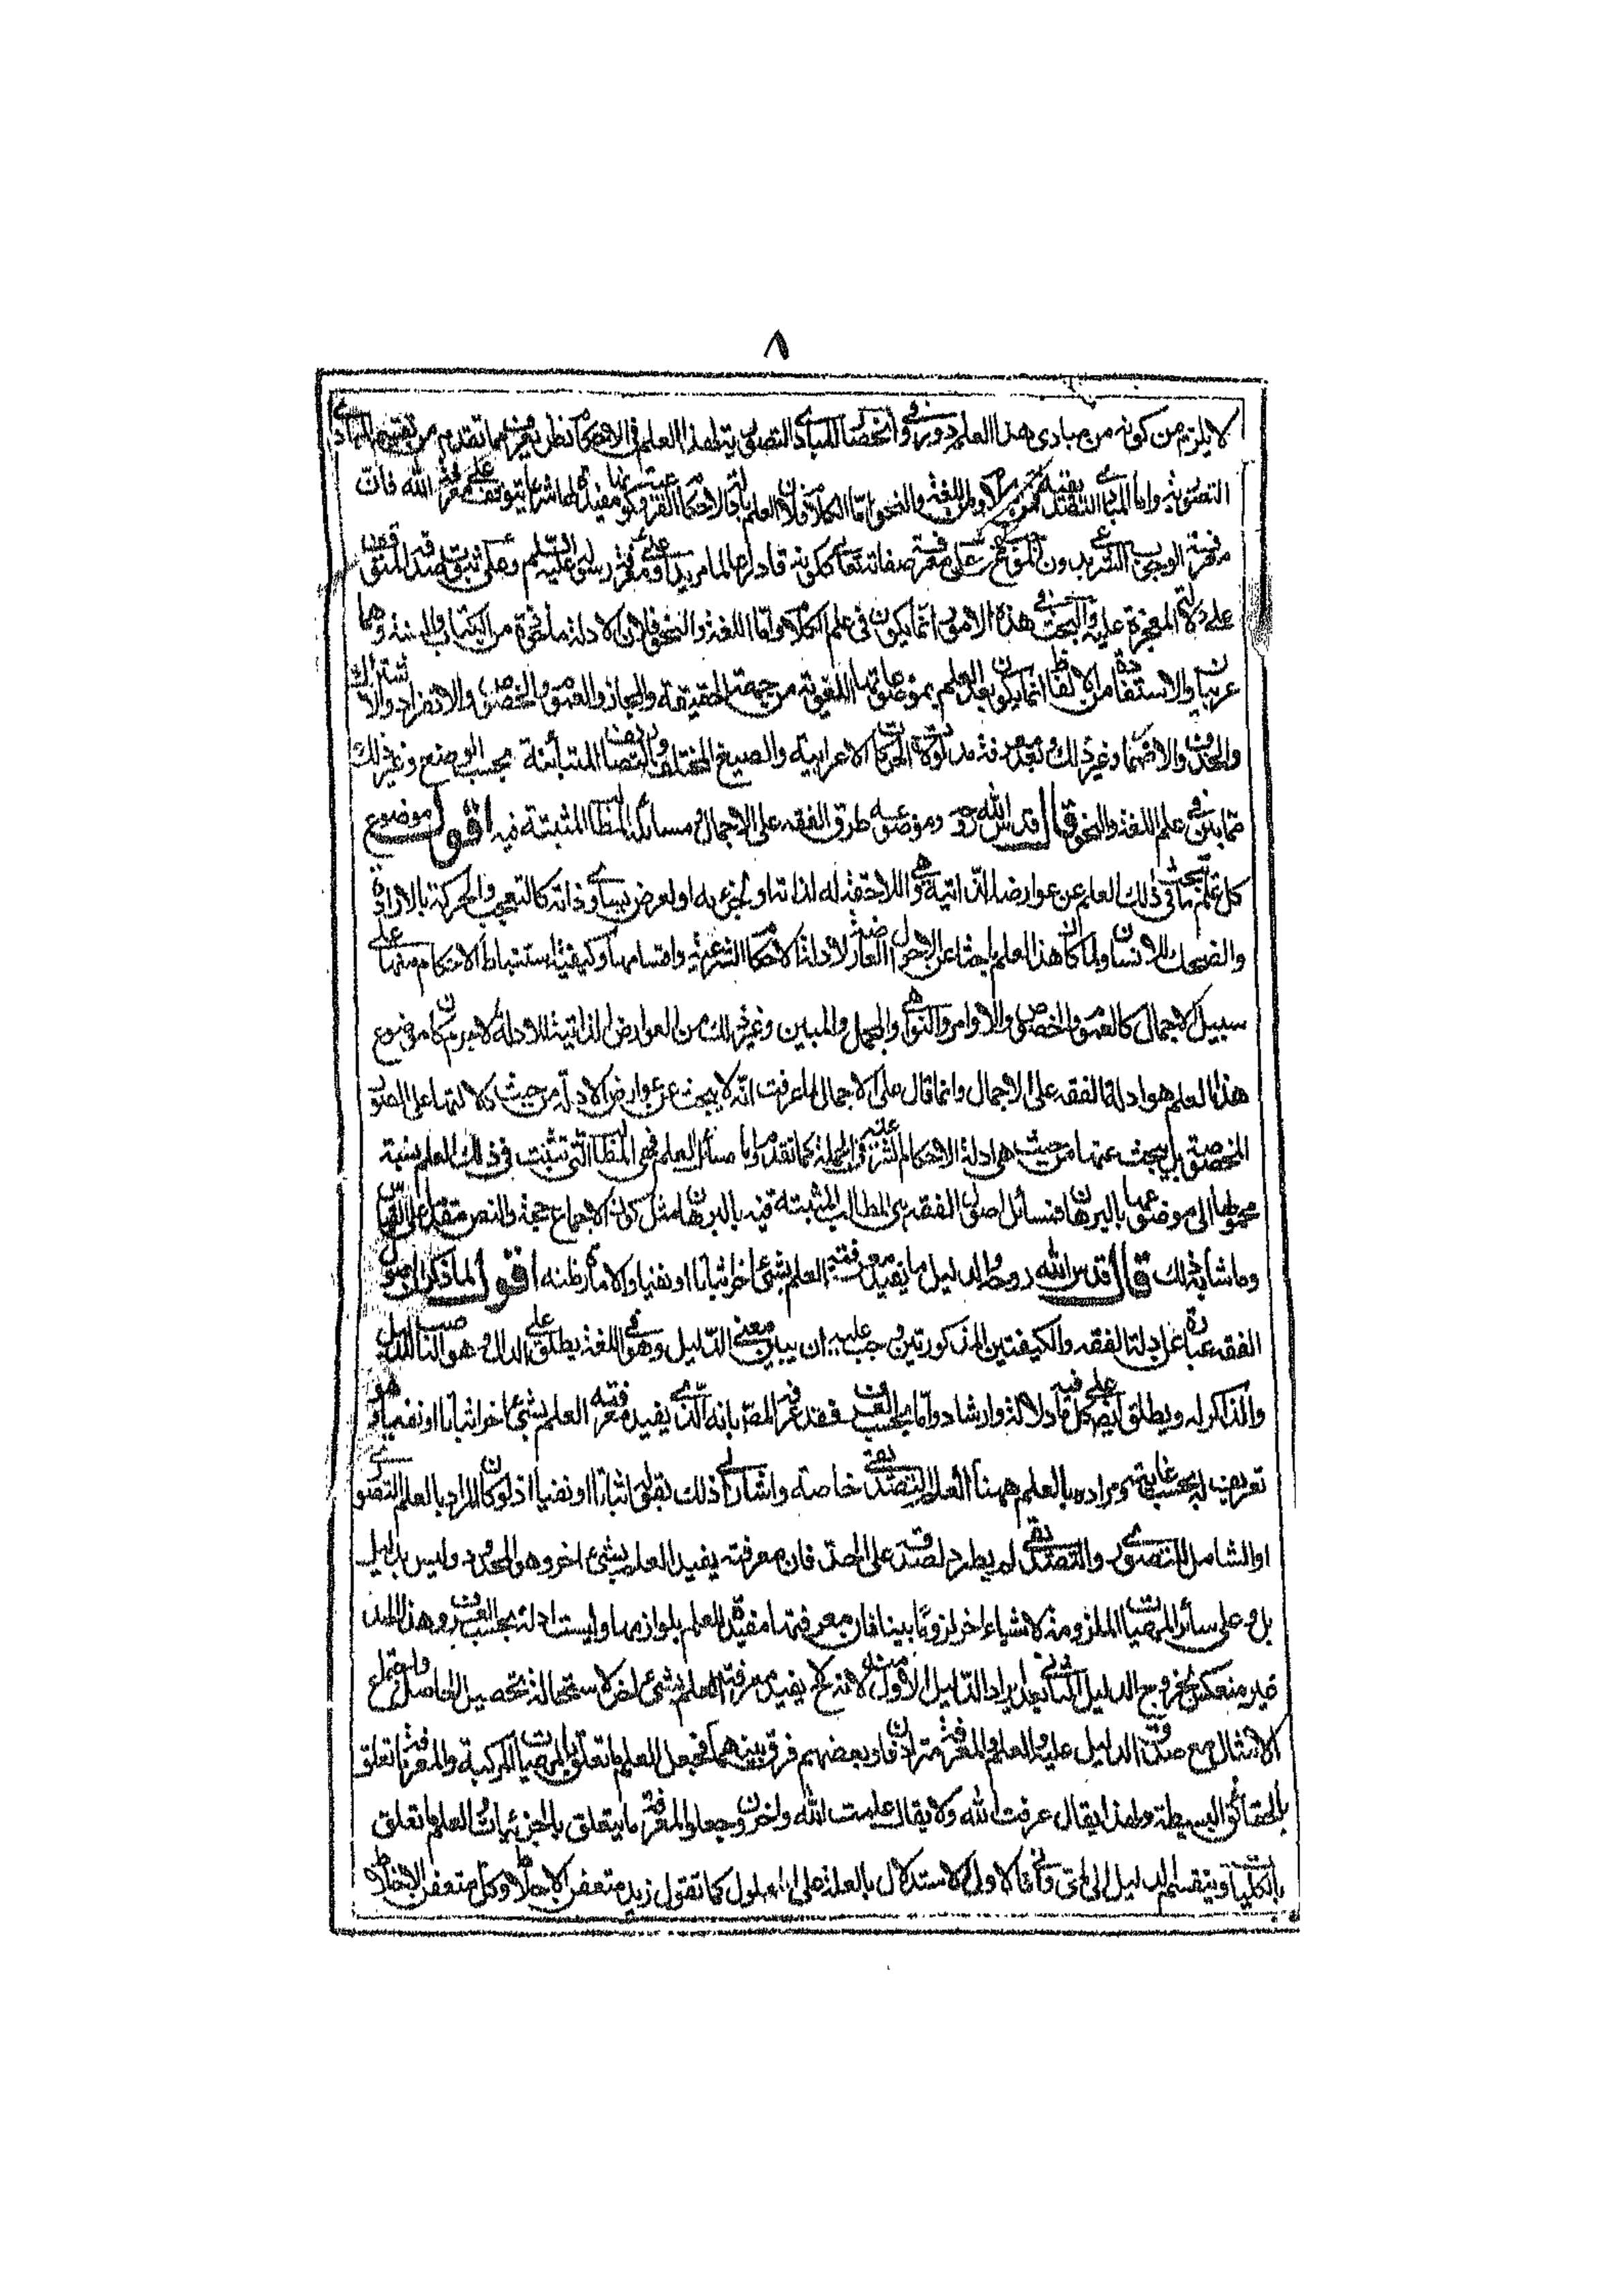 ٨
لا يلزم من كونه من مبادى هذا العلم دور وفى انحصار المبادى التصورية لهذا العلم فى الاحكام نظر يعرف مما تقدم من تفسير المبادى
التصورية واما المبادى التصديقية فمن الكلام ومن اللغة والنحو اما الكلام فلان العلم بادلة الاحكام الفرعية وكونها مفيدة لها شرعا يتوقف على معرفة الله فان
معرفة الوجوب الشرعى بدون الموجب على معرفة صفاته تعالى ككونه قادرا عالما مريدا وعلى معرفة رسوله عليه السلم وعلى ثبوت صدقه المتوقف
على دلالة المعجزة عليه والبحث فى هذه الامور انما يكون فى علم الكلام واما اللغة والنحو فلان الادلة مأخوذة من الكتاب والسنة وهما
عربيان والاستفادة من الالفاظ انما يكون بعد العلم بموضوعاتها اللغوية من جهة الحقيقة والمجاز والعموم والخصوص والانفراد والاشتراك
والحذف والاضمار وغير ذلك وبعد معرفة مدلولات الحركات الاعرابية والصيغ المختلفة والتصاريف المتبائنة بحسب الوضع وغير ذلك
مما يتبين فى علم اللغة والنحو قال قدس الله روحه وموضوعه طرق الفقه على الاجمال ومسائله المطالب المثبتة فيه اقول موضوع
كل علم ما يبحث فى ذلك العلم عن عوارضه الذاتية وهى اللاحقة له لذاته او لجزئه او لعرض يساوى ذاته كالتعجب والحركة بالارادة
والضحك للانسان ولما كان هذا العلم باحثا عن الاحوال العارضة لادلة الاحكام الشرعية واقسامها وكيفية استنباط الاحكام منها على
سبيل الاجمال كالعموم والخصوص والاوامر والنواهى والمجمل والمبين وغير ذلك من العوارض الذاتية للادلة لا جرم كان موضوع
هذا العلم هو ادلة الفقه على الاجمال وانما قال على الاجمال لما عرفت انه لا يبحث عن عوارض الادلة من حيث دلالتها على الصور
المخصوصة بل يبحث عنها من حيث هى ادلة الاحكام الشرعية فى الجملة كما تقدم واما مسائل العلم فهى المطالب التى تثبت فى ذلك العلم نسبة
محمولها الى موضوعها بالبرهان فمسائل اصول الفقه هى المطالب المثبتة فيه بالبرهان مثل كون الاجماع حجة والنص مقدم على القياس
وما شابه ذلك قال قدس الله روحه والدليل ما يفيد معرفته العلم بشئ اخر اثباتا او نفيا والامارة ظنه اقول لما ذكر ان اصول
الفقه عبارة عن ادلة الفقه والكيفيتين المذكورتين وجب عليه ان يبين معنى الدليل وهو فى اللغة يطلق على الدال وهو الناصب للدليل
والذاكر له ويطلق ايضا على كل ما فيه دلالة وارشاد واما بحسب العرف فقد عرفه المص بانه الذى يفيد معرفته العلم بشئ اخر اثباتا او نفيا وهو
تعريف له بحسب غايته ومراده بالعلم ههنا العلم التصديقى خاصة واشار الى ذلك بقوله اثباتا او نفيا اذ لو كان المراد بالعلم التصورى
او الشامل للتصورى والتصديقى لم يطرد لصدقه على الحد فان معرفته يفيد العلم بشئ اخر وهو المحدود وليس بدليل
بل وعلى سائر الماهيات الملزومة لاشياء اخر لزوما بينا فان معرفتها مفيدة العلم بلوازمها وليست ادلة بحسب العرف وهذا الحد
غير منعكس لخروج الدليل الثانى بعد ايراد الدليل الاول منه لانه ح لا يفيد معرفته العلم بشئ اخر لاستحالة تحصيل الحاصل واجتماع
الامثال مع صدق الدليل عليه والعلم والمعرفة مترادفان وبعضهم فرق بينهما فجعل العلم ما تعلق بالماهيات المركبة والمعرفة ما تعلق
بالحقائق البسيطة ولهذا يقال عرفت الله ولا يقال علمت الله واخرون جعلوا المعرفة ما يتعلق بالجزئيات والعلم ما تعلق
بالكليات وينقسم الدليل الى لمى وانى فالاول الاستدلال بالعلة على المعلول كما تقول زيد متعفن الاخلاط وكل متعفن الاخلاط